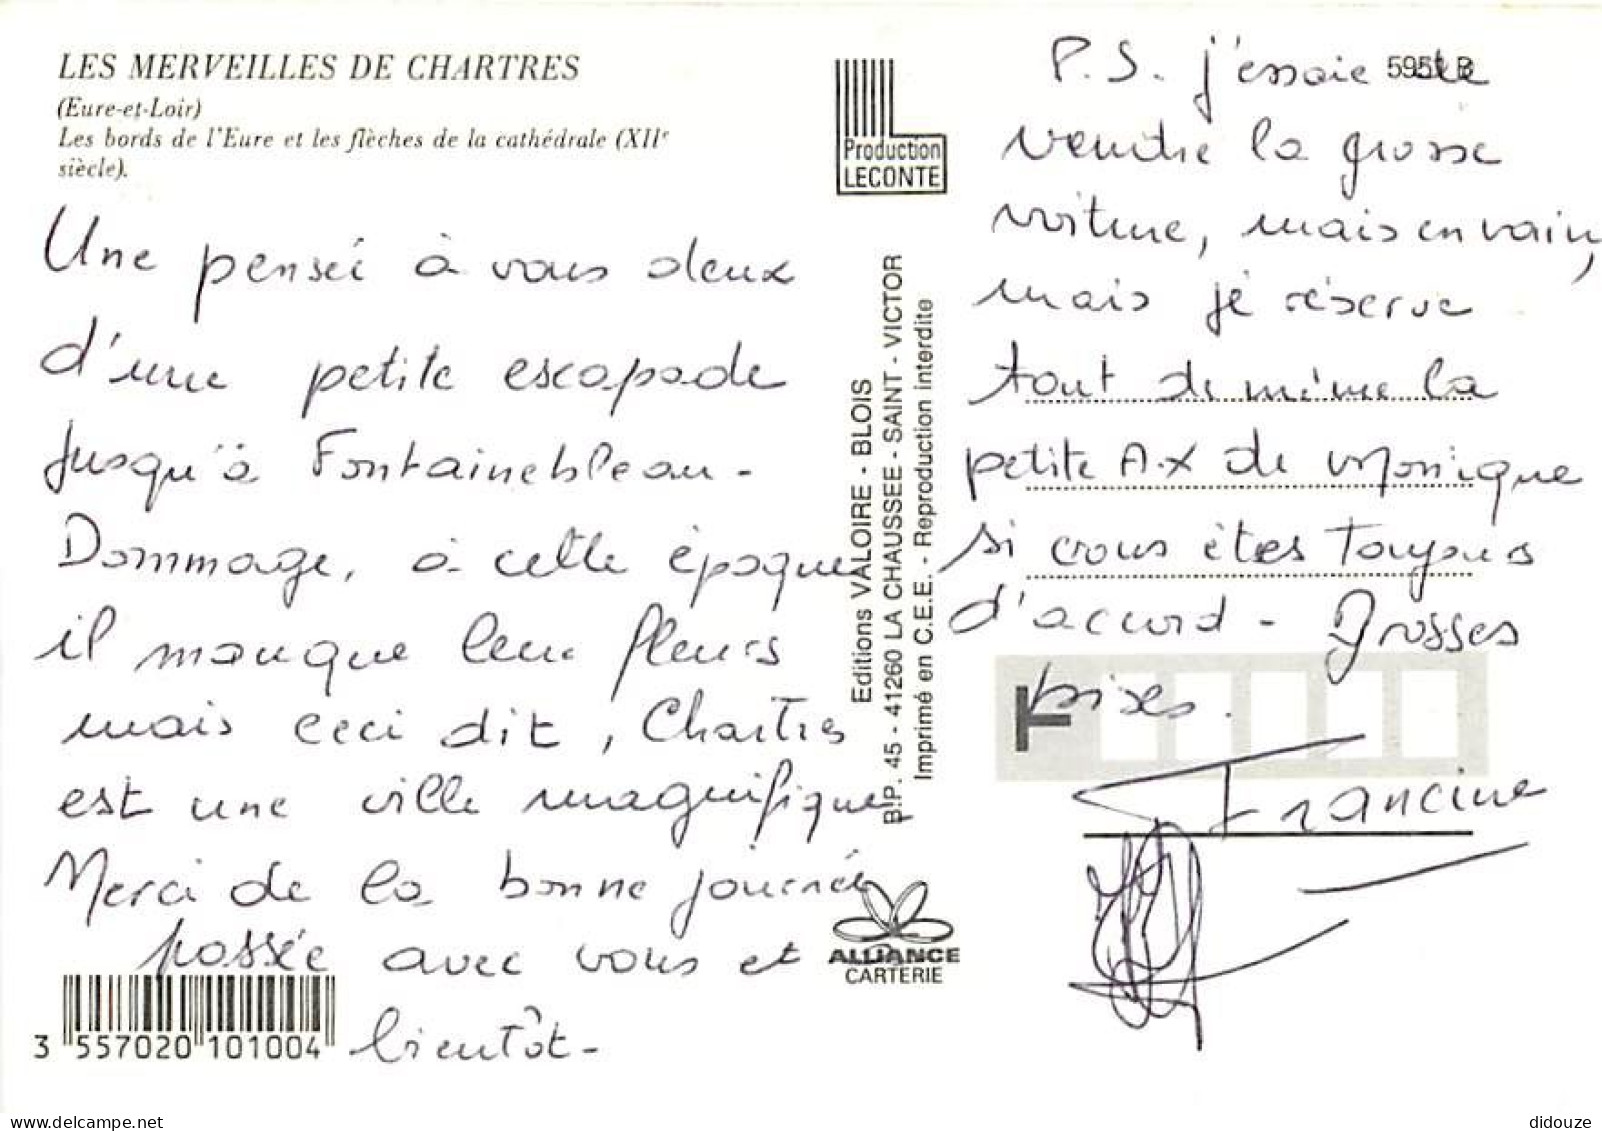 LES MERVEILLES DE CHARTRES
(Eure-et-Loir)
Les bords de l'Eure et les flèches de la cathédrale (XIIe
siècle).
Une pensée à vous deux
d'une petite escapade
jusqu'à Fontainebleau -
Dommage, à cette époque
il manque leur fleurs
mais ceci dit, Chartres
est une ville magnifique
Merci de la bonne journée
passée avec vous et
bientôt -
3 557020 101004
Production
LECONTE
Editions VALOIRE - BLOIS
B.P. 45 - 41260 LA CHAUSSEE - SAINT - VICTOR
Imprimé en C.E.E. - Reproduction interdite
ALLIANCE
CARTERIE
P.S. j'essaie de
vendre la grosse
voiture, mais en vain,
mais je réserve
tout de même la
petite A.X de Monique
si vous êtes toujours
d'accord - Grosses
bises.
Francine
didouze